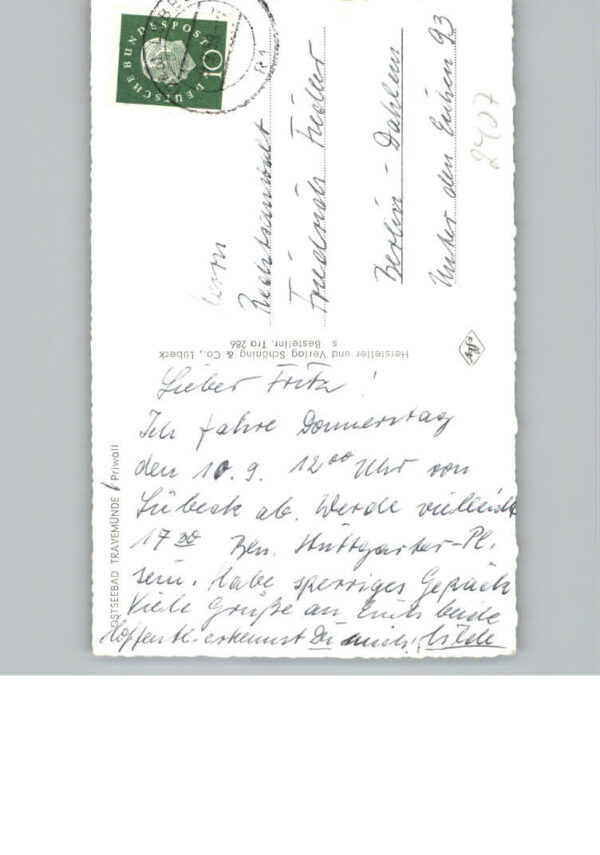 DEUTSCHE BUNDESPOST
10
Herrn
Rechtsanwalt
Friedrich
Berlin - Dahlem
Unter den Eichen 93
2407
Hersteller und Verlag Schöning & Co., Lübeck
s Bestellnr. Tra 286
OSTSEEBAD TRAVEMÜNDE / Priwall
Lieber Fritz!
Ich fahre Donnerstag
den 10.9. 12⁰⁰ Uhr von
Lübeck ab. Werde vielleicht
17³⁰ Bln. Stuttgarter-Pl.
sein. Habe sperriges Gepäck
Viele Grüße an Euch beide
Hoffentl. erkennst Du mich! Hilde